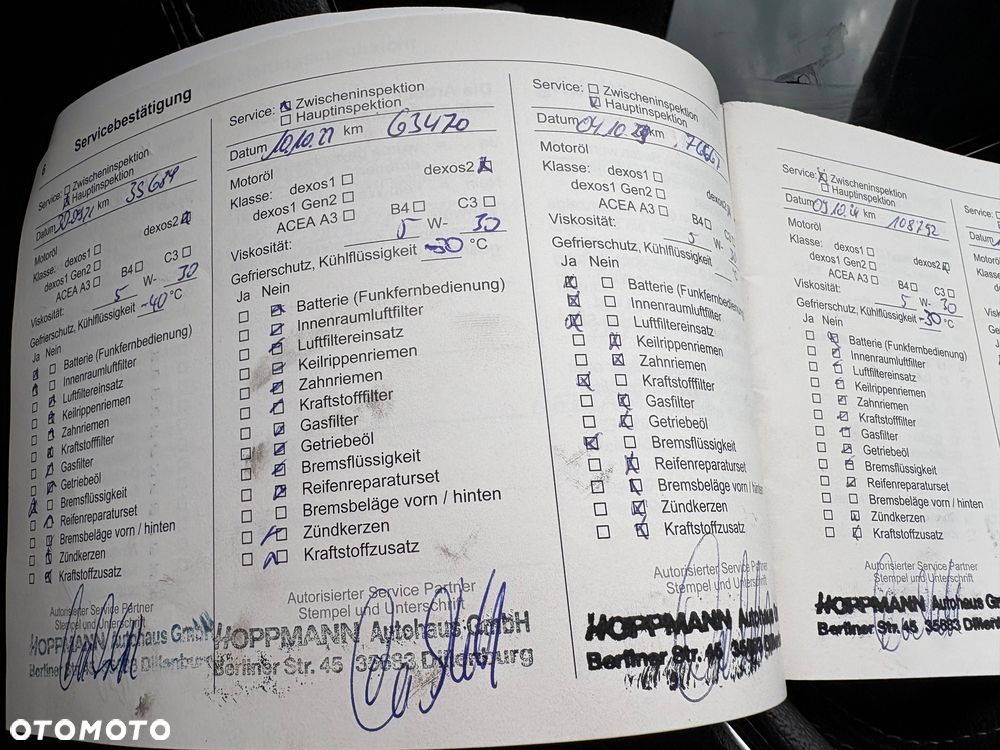 6 Servicebestätigung
Service: Zwischeninspektion
Hauptinspektion
Datum 30.09.21 km 39684
Motoröl
Klasse: dexos1 dexos2
dexos1 Gen2
ACEA A3 B4 C3
Viskosität: 5 W- 30
Gefrierschutz, Kühlflüssigkeit -40 °C
Ja Nein
Batterie (Funkfernbedienung)
Innenraumluftfilter
Luftfiltereinsatz
Keilrippenriemen
Zahnriemen
Kraftstofffilter
Gasfilter
Getriebeöl
Bremsflüssigkeit
Reifenreparaturset
Bremsbeläge vorn / hinten
Zündkerzen
Kraftstoffzusatz
Autorisierter Service Partner
Stempel und Unterschrift
HOPPMANN Autohaus GmbH
Berliner Str. 45 35683 Dillenburg
Service: Zwischeninspektion
Hauptinspektion
Datum 10.10.22 km 63470
Motoröl
Klasse: dexos1 dexos2
dexos1 Gen2
ACEA A3 B4 C3
Viskosität: 5 W- 30
Gefrierschutz, Kühlflüssigkeit -30 °C
Ja Nein
Batterie (Funkfernbedienung)
Innenraumluftfilter
Luftfiltereinsatz
Keilrippenriemen
Zahnriemen
Kraftstofffilter
Gasfilter
Getriebeöl
Bremsflüssigkeit
Reifenreparaturset
Bremsbeläge vorn / hinten
Zündkerzen
Kraftstoffzusatz
Autorisierter Service Partner
Stempel und Unterschrift
HOPPMANN Autohaus GmbH
Berliner Str. 45 35683 Dillenburg
Service: Zwischeninspektion
Hauptinspektion
Datum 04.10 km
Motoröl
Klasse: dexos1
dexos1 Gen2
ACEA A3 B4
Viskosität: 5 W-
Gefrierschutz, Kühlflüssigkeit
Ja Nein
Batterie (Funkfernbedienung)
Innenraumluftfilter
Luftfiltereinsatz
Keilrippenriemen
Zahnriemen
Kraftstofffilter
Gasfilter
Getriebeöl
Bremsflüssigkeit
Reifenreparaturset
Bremsbeläge vorn / hinten
Zündkerzen
Kraftstoffzusatz
Autorisierter Service Partner
Stempel und Unterschrift
HOPPMANN Autohaus
Berliner Str. 45
Service: Zwischeninspektion
Hauptinspektion
Datum 09.10.24 km 108792
Motoröl
Klasse: dexos1 dexos2
dexos1 Gen2
ACEA A3 B4 C3
Viskosität: 5 W- 30
Gefrierschutz, Kühlflüssigkeit -30 °C
Ja Nein
Batterie (Funkfernbedienung)
Innenraumluftfilter
Luftfiltereinsatz
Keilrippenriemen
Zahnriemen
Kraftstofffilter
Gasfilter
Getriebeöl
Bremsflüssigkeit
Reifenreparaturset
Bremsbeläge vorn / hinten
Zündkerzen
Kraftstoffzusatz
Autorisierter Service Partner
Stempel und Unterschrift
HOPPMANN Autohaus GmbH
Berliner Str. 45 35683 Dillenburg
OTOMOTO